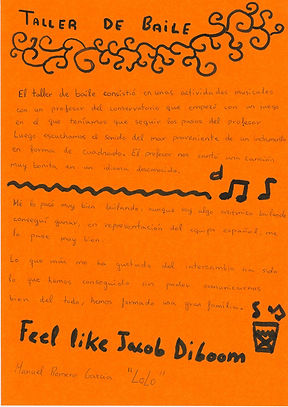 TALLER DE BAILE
El taller de baile consistió en unas actividades musicales
con un profesor del conservatorio que empezó con un juego
en el que teníamos que seguir los pasos del profesor
Luego escuchamos el sonido del mar proveniente de un instrumento
en forma de cuadrado. El profesor nos cantó una canción
muy bonita en un idioma desconocido.
Me lo pasé muy bien bailando, aunque soy algo arítmico bailando
conseguí ganar, en representación del equipo español, me
lo pasé muy bien.
Lo que más me ha gustado del intercambio ha sido
lo que hemos conseguido sin poder comunicarnos
bien del todo, hemos formado una gran familia.
Feel like Jacob Diboom
Manuel Romero García "LOLO"